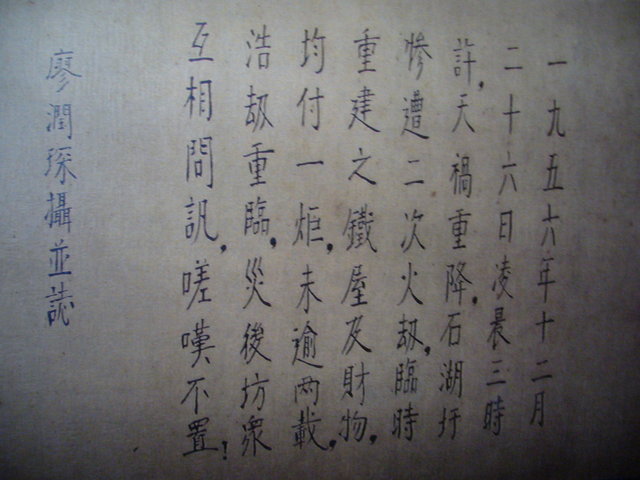 一九五六年十二月
二十六日凌晨三時
許，天禍重降。石湖圩
慘遭二次火刼，臨時
重建之鐵屋及財物，
均付一炬，未逾两載，
浩刼重臨，災後坊衆
互相問訊，嗟嘆不置！
廖潤琛攝並誌